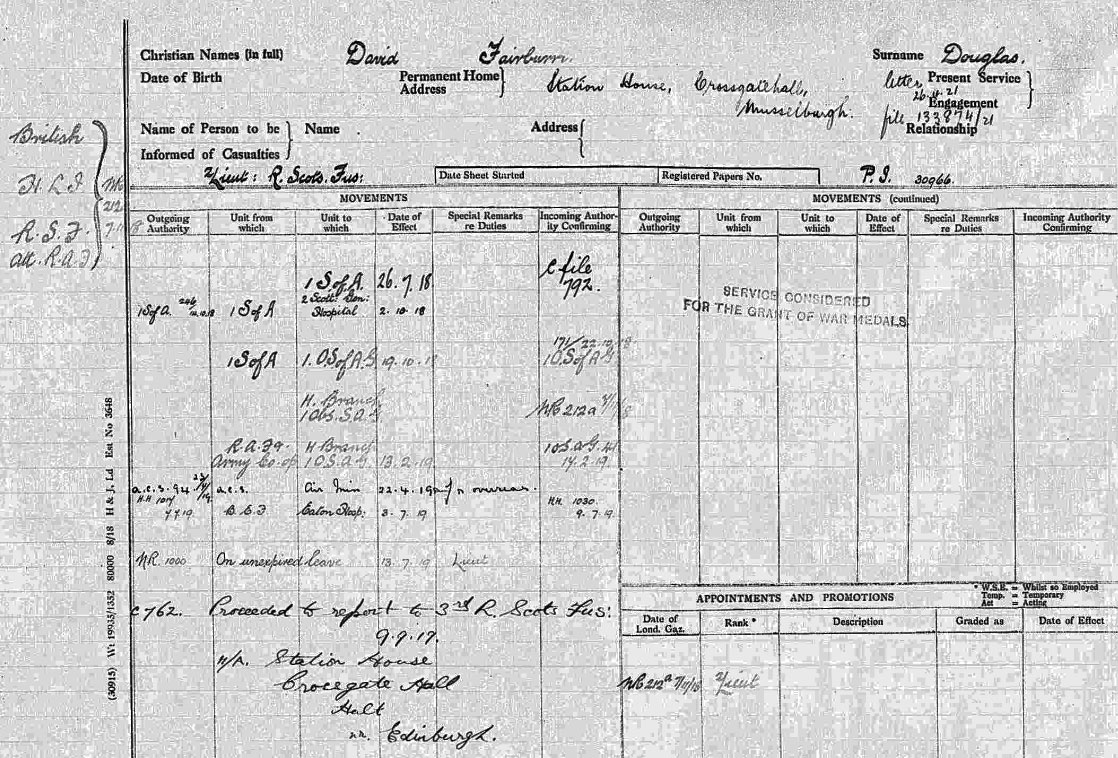 Christian Names (in full) David Fairburn. Surname Douglas.
Date of Birth Permanent Home Address Station House, Crossgatehall, Musselburgh.
letter 26.4.21 Present Service Engagement
file 133874/21
Relationship
Name of Person to be Informed of Casualties Name Address
2/Lieut: R. Scots. Fus: Date Sheet Started Registered Papers No. P.I. 30966.
British
H.L.I
R.S.F.
att. R.A.F
NR
212
MOVEMENTS
Outgoing Authority Unit from which Unit to which Date of Effect Special Remarks re Duties Incoming Authority Confirming
1 S of A. 26.7.18 C file 792.
1 S of A. 246 1 S of A 2 Scott. Gen: Hospital 2.10.18
1 S of A 1.O.S of A.G 19.10.18 171/22.10.18 1 O.S of A.G
H. Branch 1 Obs. S.A.G. NR 212a
R.A.F Army Co-op H Branch 1 O.S.a.G. 13.2.19 1 O S.a.G. 14.2.19.
a.c.s. 94 a.c.s. Air Min 22.4.19 overseas.
H.H 1017 7.7.19 B.E.F Eaton Hosp: 3.7.19 H.H. 1030. 9.7.19.
NR. 1000 On unexpired leave 13.7.19 Lieut
C762. Proceeded to report to 3rd R. Scots Fus:
9.9.19.
N/A. Station House
Crocegate Hall
Halt
nr. Edinburgh.
MOVEMENTS (continued)
Outgoing Authority Unit from which Unit to which Date of Effect Special Remarks re Duties Incoming Authority Confirming
SERVICE CONSIDERED
FOR THE GRANT OF WAR MEDALS.
* W.S.E. = Whilst so Employed
Temp. = Temporary
Act = Acting
APPOINTMENTS AND PROMOTIONS
Date of Lond. Gaz. Rank * Description Graded as Date of Effect
NR 212a 7/11/18 2/Lieut
(30915) Wt 19935/1332 80000 8/18 H & J, Ld Est No 3648